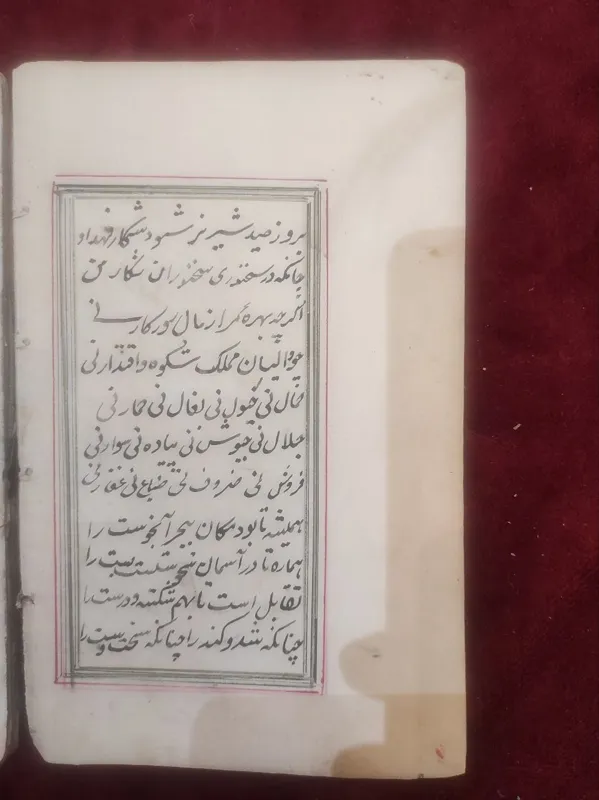 بروز صید شیر نر شود شکار فهد او
چنانکه در سخنوری سخنوران شکار من
اگرچه بهره مر مرا ز مال روزگار نی
چو والیان مملک شکوه و اقتدار نی
جمال نی خیول نی بغال نی حمار نی
جلال نی جیوش نی پیاده نی سوار نی
فروش نی ظروف نی ضیاع نی عقار نی
همیشه تا بود مکان ببحر آبخوست را
هماره تا در آسمان نحوستست بست را
تقابل است تا بهم شکسته و درست را
چنانکه تند و کند را چنانکه سخت و سست را